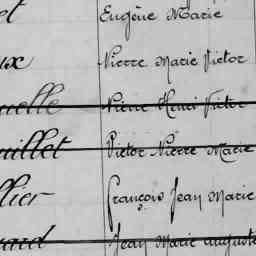 et Eugène Marie
ux Pierre Marie Victor
uelle Pierre Henri Victor
uillet Victor Pierre Marie
llier François Jean Marie
uard Jean Marie auguste